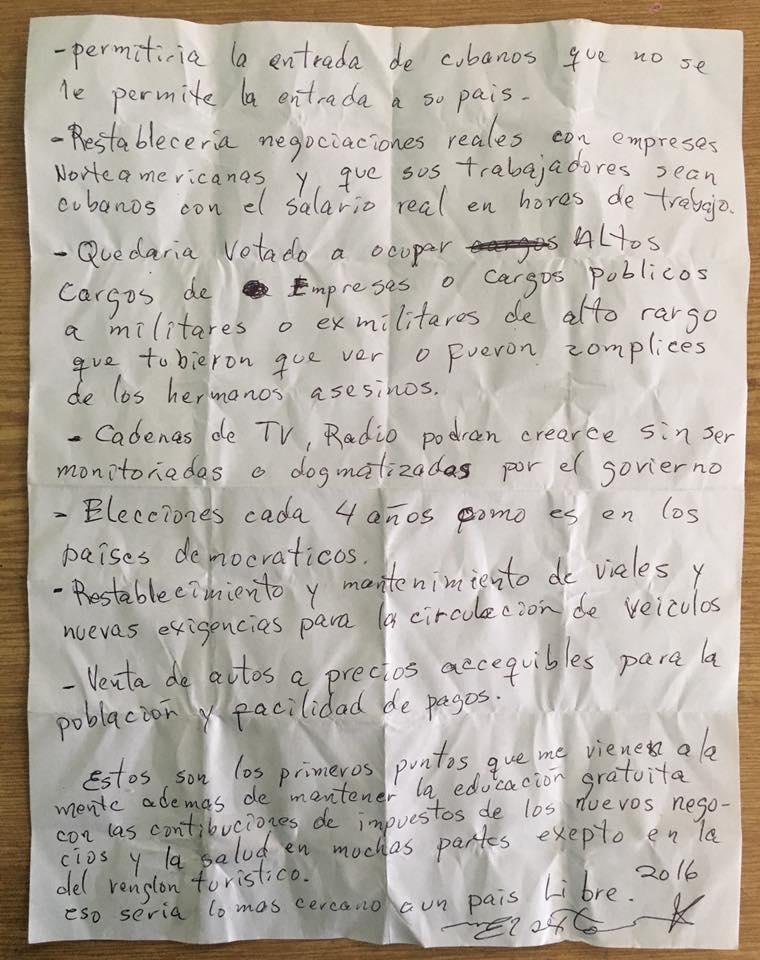 - permitiria la entrada de cubanos que no se
le permite la entrada a su pais.
- Restableceria negociaciones reales con empresas
Norteamericanas y que sus trabajadores sean
cubanos con el salario real en horas de trabajo.
- Quedaria Vetado a ocupar cargos Altos
Cargos de Empresas o cargos publicos
a militares o exmilitares de alto rargo
que tubieron que ver o fueron zomplices
de los hermanos asesinos.
- Cadenas de TV, Radio podran crearce sin ser
monitoriadas o dogmatizadas por el govierno
- Elecciones cada 4 años como es en los
países democraticos.
- Restablecimiento y mantenimiento de viales y
nuevas exigencias para la circulacion de veiculos
- Venta de autos a precios accequibles para la
población y facilidad de pagos.
Estos son los primeros puntos que me vienen a la
mente ademas de mantener la educación gratuita
con las contibuciones de impuestos de los nuevos nego-
cios y la salud en muchas partes exepto en la
del renglon turistico.
eso seria lo mas cercano a un pais Libre. 2016